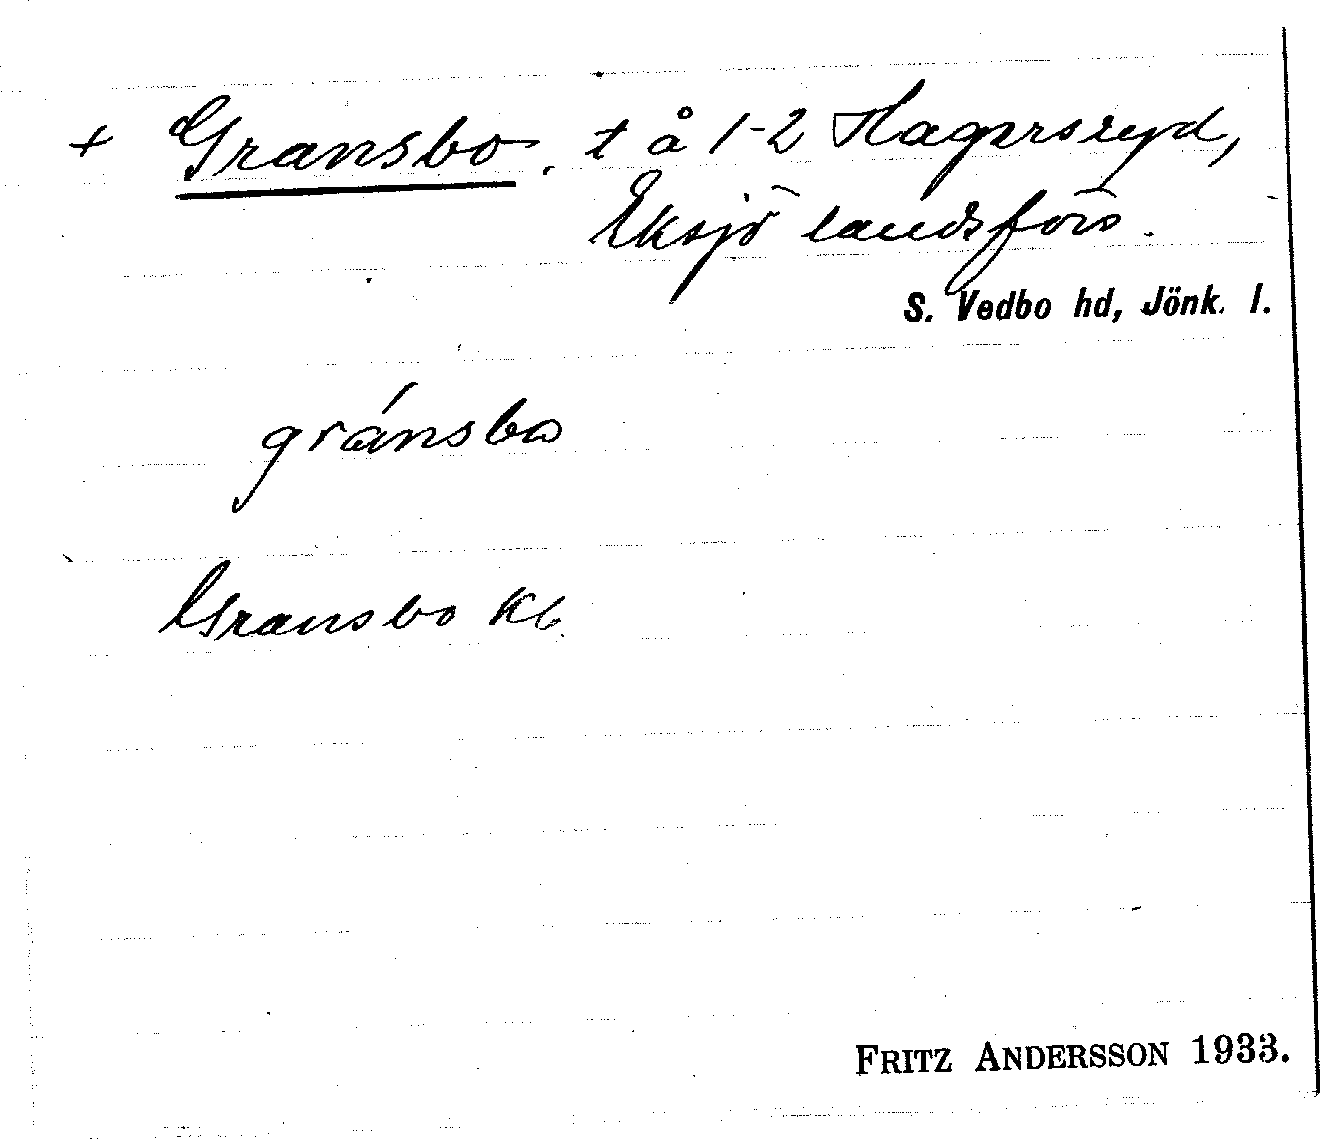 + Gransbo, t å 1-2 Hagersryd,
Eksjö landsförs.
S. Vedbo hd, Jönk. l.
gránsbo
Gransbo Kb.
FRITZ ANDERSSON 1933.